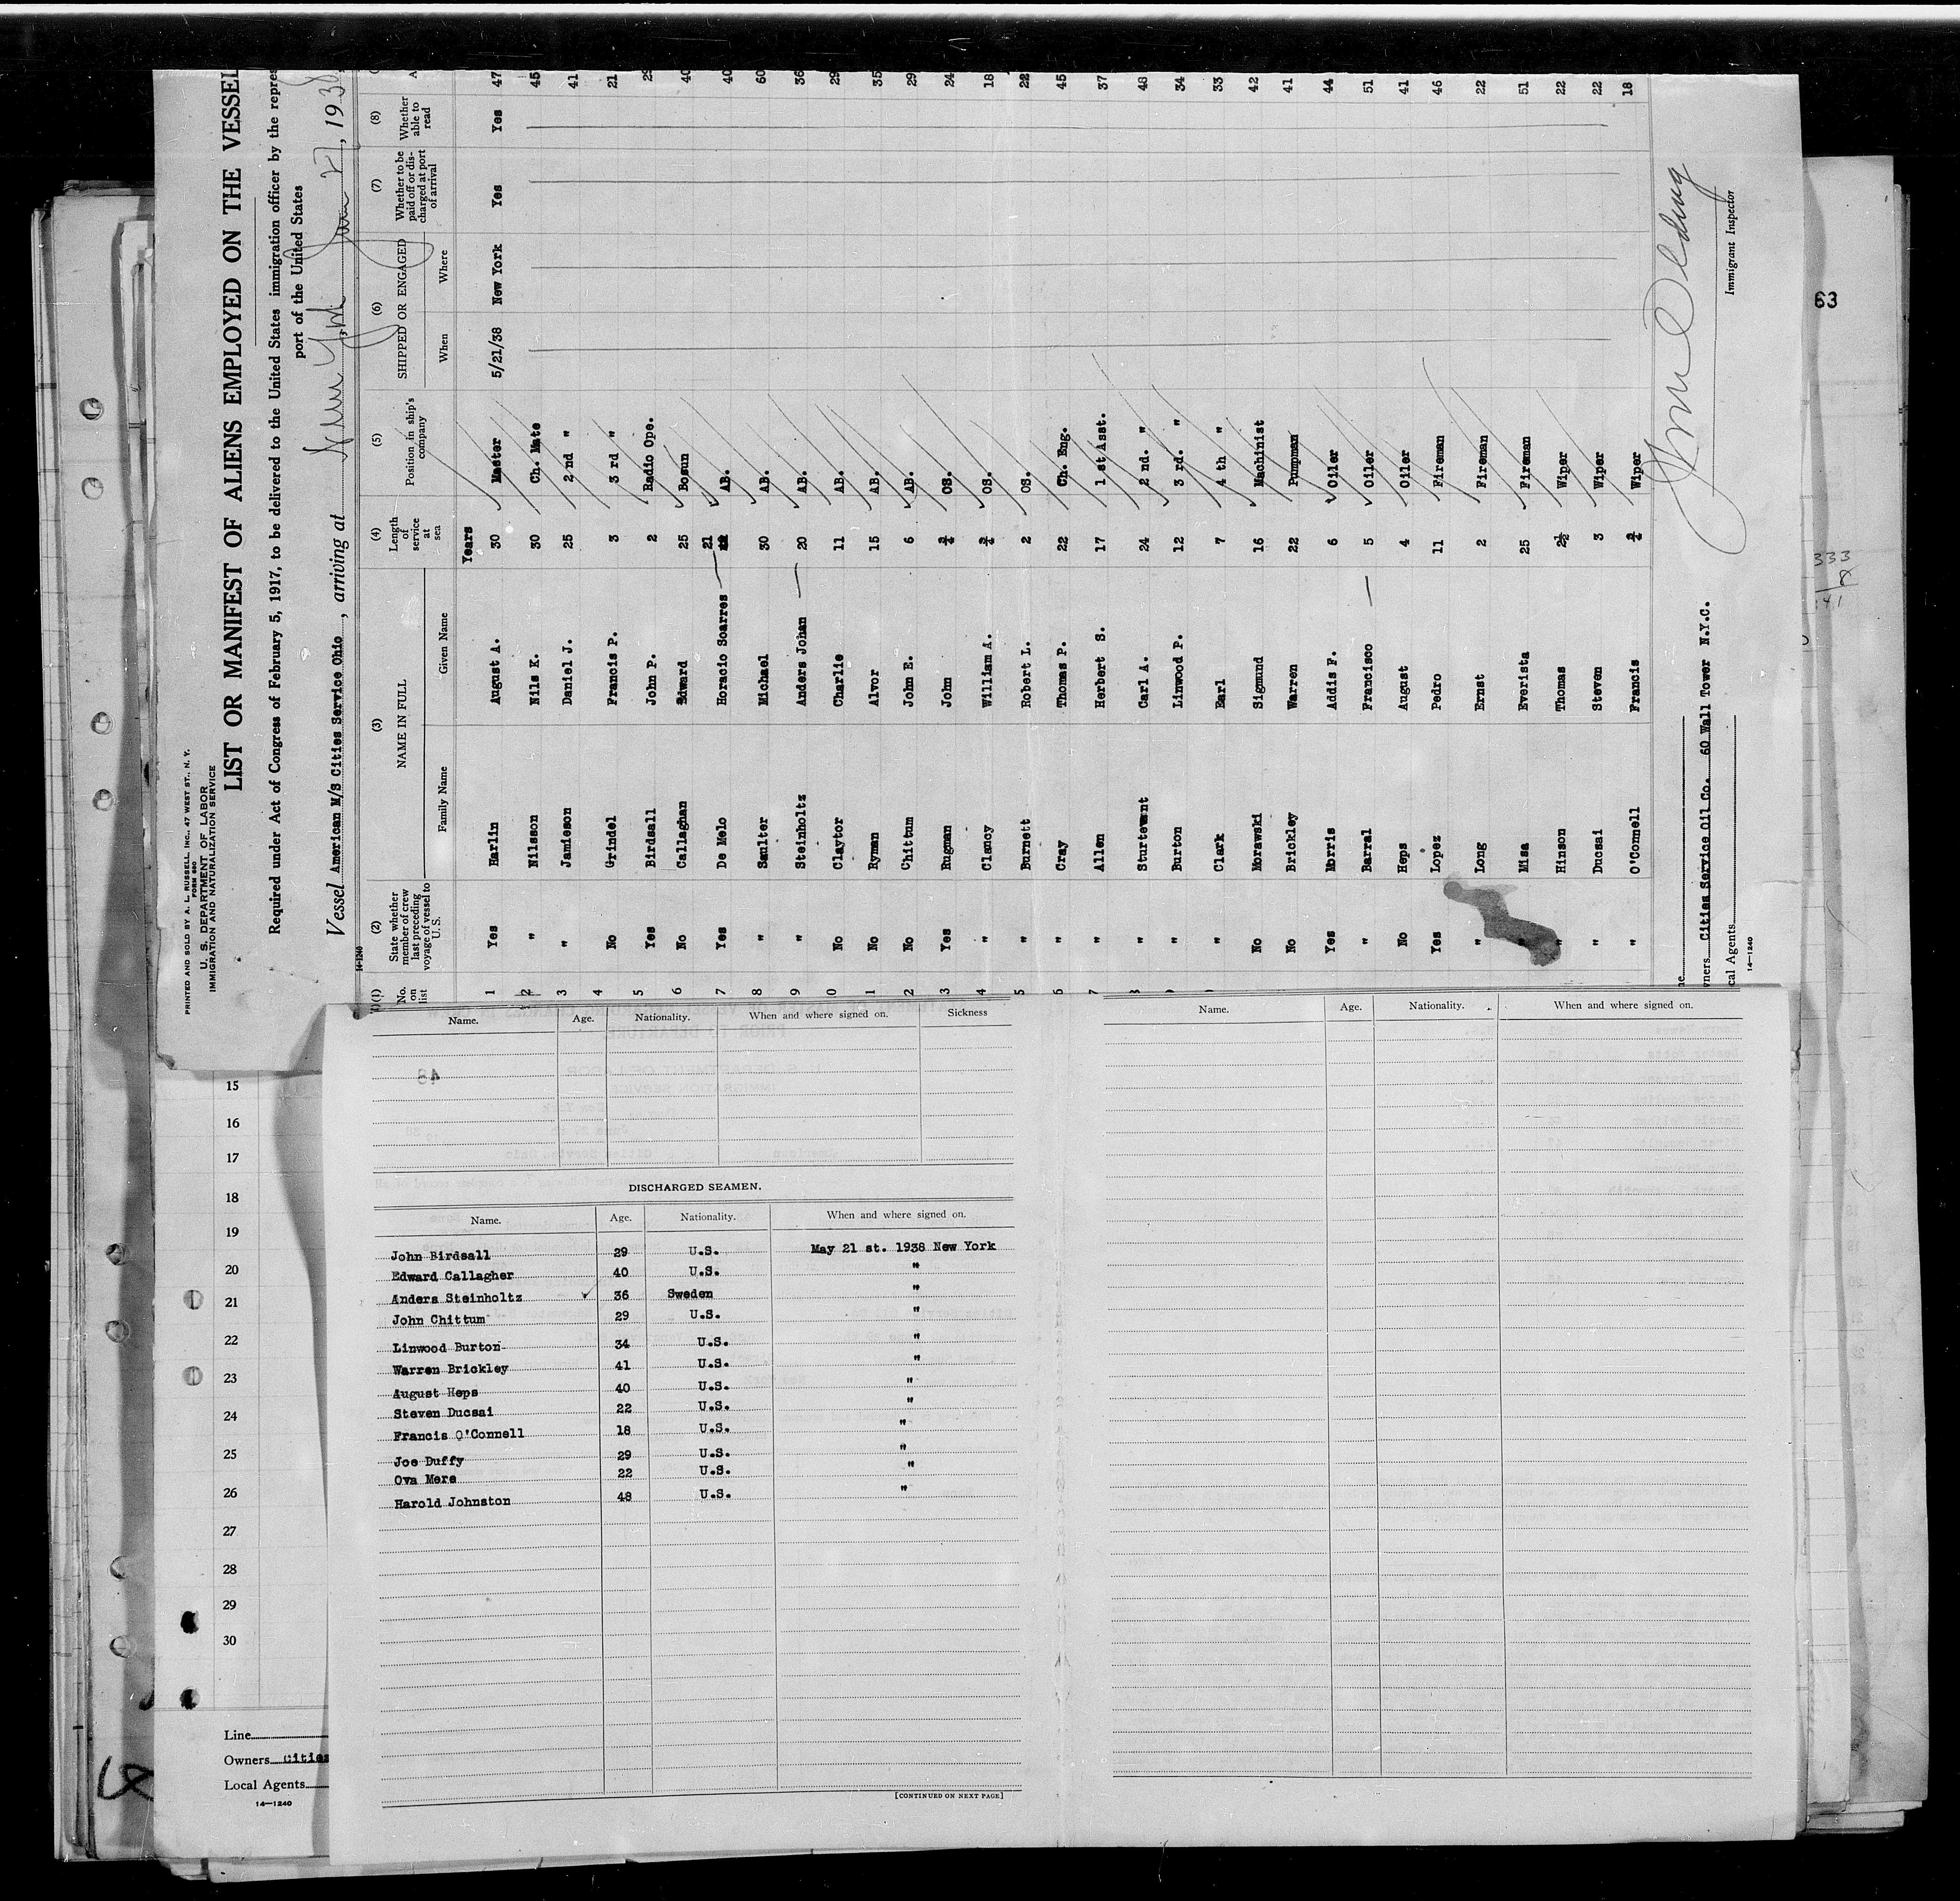 PRINTED AND SOLD BY A. L. RUSSELL, INC., 47 WEST ST., N. Y.
FORM 680
U. S. DEPARTMENT OF LABOR
IMMIGRATION AND NATURALIZATION SERVICE
LIST OR MANIFEST OF ALIENS EMPLOYED ON THE VESSEL
Required under Act of Congress of February 5, 1917, to be delivered to the United States immigration officer by the repres
port of the United States
Vessel American M/S Cities Service Ohio, arriving at New York June 27, 1938
14-1240
(1) (2) (3) (4) (5) (6) (7) (8)
No. on list State whether member of crew last preceding voyage of vessel to U. S. NAME IN FULL Length of service at sea Position in ship's company SHIPPED OR ENGAGED Whether to be paid off or discharged at port of arrival Whether able to read A
Family Name Given Name When Where
Years
1 Yes Harlin August A. 30 Master 5/21/38 New York Yes Yes 47
2 " Nilsson Nils K. 30 Ch. Mate 45
3 " Jamieson Daniel J. 25 2 nd " 41
4 No Grindel Francis P. 3 3 rd " 21
5 Yes Birdsall John P. 2 Radio Ope. 29
6 No Callaghan Edward 25 Bosun 40
7 Yes De Melo Horacio Soarres 21 AB. 40
8 " Saulter Michael 30 AB. 60
9 " Steinholtz Anders Johan 20 AB. 36
0 No Claytor Charlie 11 AB. 29
1 No Ryman Alvor 15 AB. 35
2 No Chittum John E. 6 AB. 29
3 Yes Rugman John 3/4 OS. 24
4 " Clancy William A. 3/4 OS. 18
5 " Burnett Robert L. 2 OS. 22
6 " Cray Thomas P. 22 Ch. Eng. 45
7 " Allen Herbert S. 17 1 st Asst. 37
8 " Sturtevant Carl A. 24 2 nd. " 48
" Burton Linwood P. 12 3 rd. " 34
" Clark Earl 7 4 th " 33
No Morawski Sigmund 16 Machinist 42
No Brickley Warren 22 Pumpman 41
Yes Morris Addis F. 6 Oiler 44
" Barral Francisco 5 Oiler 51
No Heps August 4 Oiler 41
Yes Lopez Pedro 11 Fireman 46
" Long Ernst 2 Fireman 22
" Misa Everista 25 Fireman 51
" Hinson Thomas 2½ Wiper 22
" Ducsai Steven 3 Wiper 22
" O'Connell Francis 3/4 Wiper 18
ne
wners Cities Service Oil Co. 60 Wall Tower N.Y.C.
cal Agents
14—1240
Immigrant Inspector
63
333
Name. Age. Nationality. When and where signed on. Sickness
DISCHARGED SEAMEN.
Name. Age. Nationality. When and where signed on.
John Birdsall 29 U.S. May 21 st. 1938 New York
Edward Callagher 40 U.S. "
Anders Steinholtz 36 Sweden "
John Chittum 29 U.S. "
Linwood Burton 34 U.S. "
Warren Brickley 41 U.S. "
August Heps 40 U.S. "
Steven Ducsai 22 U.S. "
Francis O'Connell 18 U.S. "
Joe Duffy 29 U.S. "
Ova Mere 22 U.S. "
Harold Johnston 48 U.S. "
[CONTINUED ON NEXT PAGE]
Name. Age. Nationality. When and where signed on.
15
16
17
18
19
20
21
22
23
24
25
26
27
28
29
30
Line
Owners Cities
Local Agents
14—1240